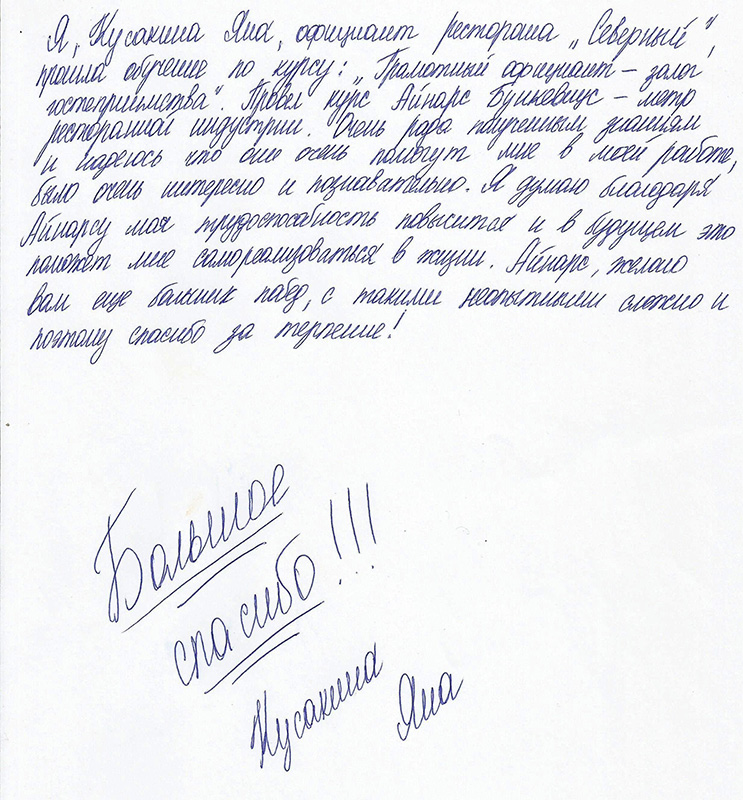 Я, Кусакина Яна, официант ресторана „Северный",
прошла обучение по курсу: „Грамотный официант – залог
гостеприимства". Провел курс Айнарс Бункевицс – метр
ресторанной индустрии. Очень рада полученным знаниям
и надеюсь что они очень помогут мне в моей работе,
было очень интересно и познавательно. Я думаю благодаря
Айнарсу моя трудоспособность повысится и в будущем это
поможет мне самореализоваться в жизни. Айнарс, желаю
вам еще больших побед, с такими неопытными сложно и
поэтому спасибо за терпение!
Большое
спасибо!!!
Кусакина
Яна